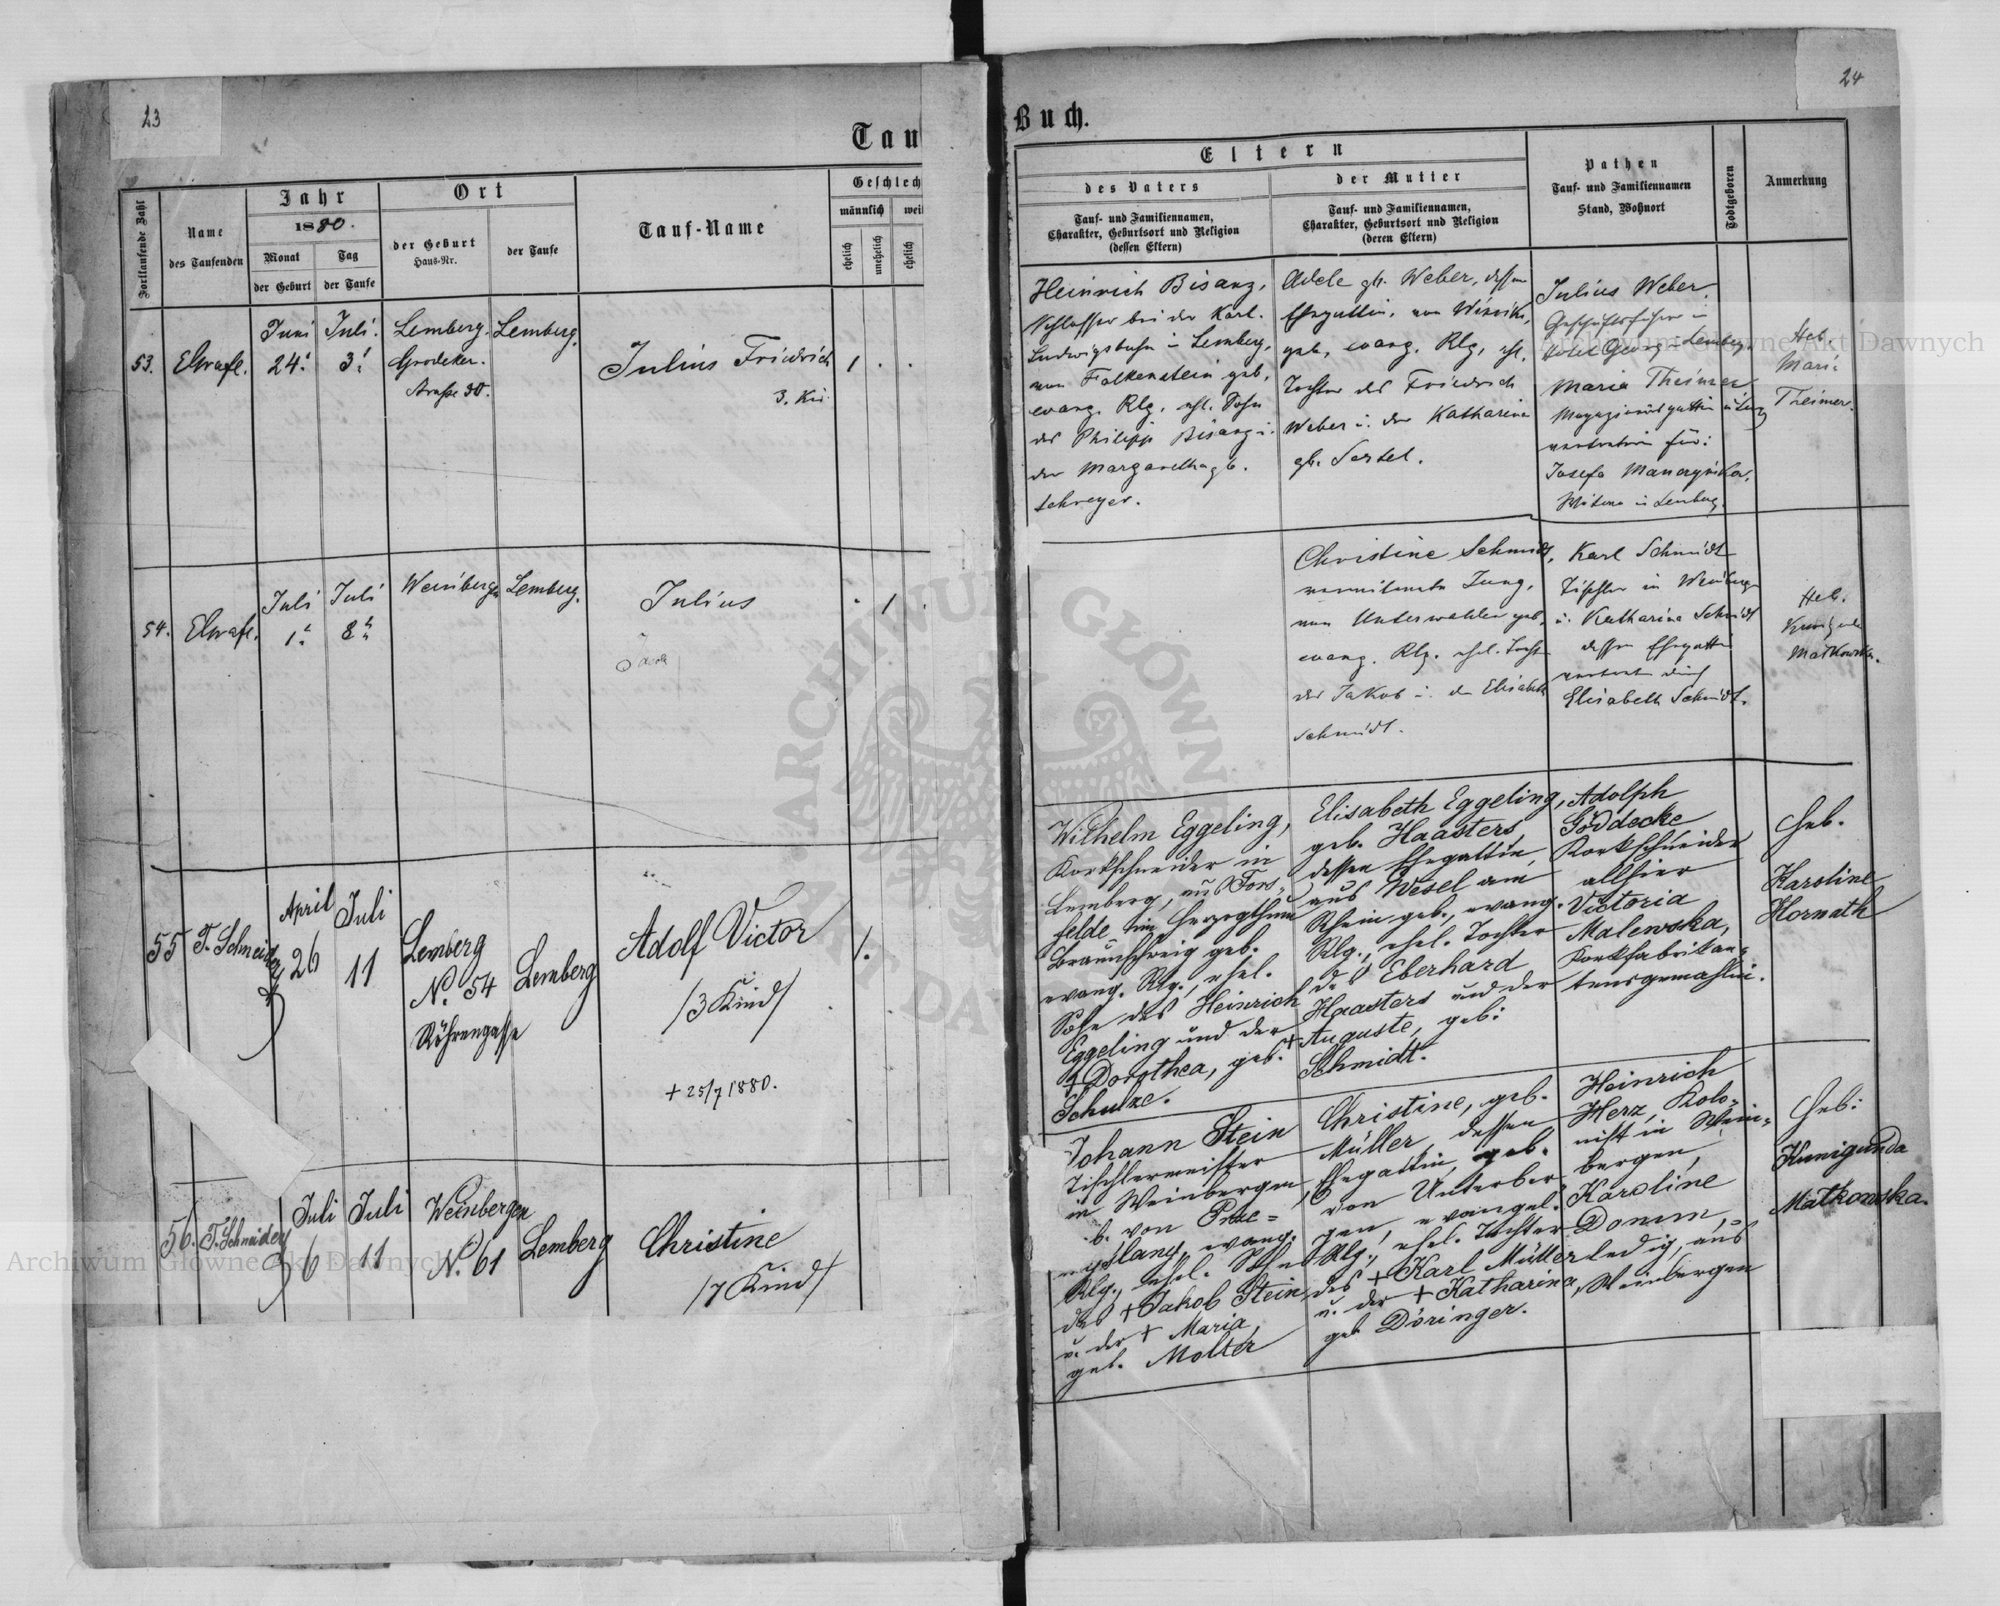 23
24
Tau
Buch.
Fortlaufende Zahl
Name
des Taufenden
Jahr
1880.
Monat
der Geburt
Tag
der Taufe
Ort
der Geburt
Haus-Nr.
der Taufe
Tauf-Name
Geschlech
männlich
wei
ehelich
unehelich
ehelich
Eltern
des Vaters
Tauf- und Familiennamen,
Charakter, Geburtsort und Religion
(dessen Eltern)
der Mutter
Tauf- und Familiennamen,
Charakter, Geburtsort und Religion
(deren Eltern)
Pathen
Tauf- und Familiennamen
Stand, Wohnort
Todtgeboren
Anmerkung
53.
Juni
24.
Juli.
3.
Lemberg.
Grodeker.
Straße 30.
Lemberg.
Julius Friedrich
3. Ki
1 . .
Heinrich Bisanz,
Schlosser bei der Karl.
Ludwigsbahn in Lemberg,
von Falkenstein geb.
evang. Rlg. ehl. Sohn
des Philipp Bisanz u.
der Margaretha gb.
Schreyer.
Adele gb. Weber, dessen
Ehegattin, von
geb. evang. Rlg. ehl.
Tochter des Friedrich
Weber u. der Katharina
gb. Sertel.
Julius Weber
Geschäftsführer in
Hotel George Lemberg.
Maria Theimer
vertreterin für:
Josefa
in Lemberg.
Heb.
Mari
Theimer.
54.
Juli
1.
Juli
8.
Weinbergen
Lemberg.
Julius
. 1 .
Christine Schmidt,
verwitwete Jung,
von Unterwalden geb.
evang. Rlg. ehel. Tocht
des Jakob u. der Elisabeth
Schmidt.
Karl Schmidt
Tischler in Weinbergen
u. Katharina Schmidt
dessen Ehegattin
vertret durch
Elisabeth Schmidt.
Heb.
Kunigunde
Matkowska.
55
T. Schneider
April
26
Juli
11
Lemberg
No. 54
Röhrengasse
Lemberg
Adolf Victor
/3 Kind/
+ 25/7 1880.
1.
Wilhelm Eggeling,
Korkschneider in
Lemberg, aus Fors=
felde im Herzogthum
Braunschweig geb.
evang. Rlg., ehel.
Sohn des Heinrich
Eggeling und der
+ Dorothea, geb.
Schulze.
Elisabeth Eggeling,
geb. Haasters,
dessen Ehegattin,
aus Wesel am
Rhein geb., evang.
Rlg., ehel. Tochter
des Eberhard
Haasters und der
+ Auguste, geb:
Schmidt.
Adolph
Göddecke
Korkschneider
allhier
Victoria
Malewska,
Korkfabrikan=
tensgemahlin.
Heb.
Karoline
Hornath
56.
T. Schneider
Juli
6
Juli
11
Weinbergen
No. 61
Lemberg
Christine
/7 Kind/
Johann Stein
Tischlermeister
in Weinbergen
b. von Prze=
myslany, evang.
Rlg., ehel. Sohn
des + Jakob Stein
u. der + Maria,
geb. Molter
Christine, geb.
Müller, dessen
Ehegattin, geb.
von Unterber=
gen, evangel.
Rlg., ehel. Tochter
des + Karl Müller
u. der + Katharina,
geb. Döringer.
Heinrich
Herz, Kolo=
nist in Wein=
bergen,
Karoline
Domm,
ledig, aus
Weinbergen
Heb:
Kunigunda
Matkowska.
Archiwum Główne Akt Dawnych
Archiwum Główne Akt Dawnych
ARCHIWUM GŁÓWNE AKT DAWNYCH